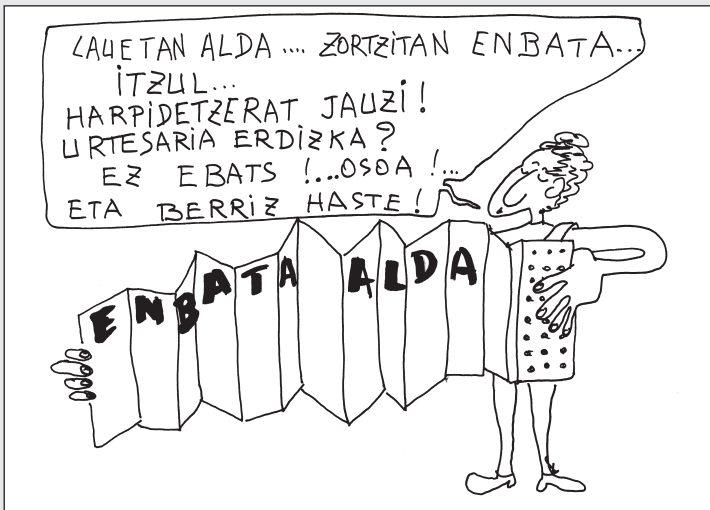 LAUETAN ALDA .... ZORTZITAN ENBATA...
ITZUL...
HARPIDETZERAT JAUZI !
URTESARIA ERDIZKA ?
EZ EBATS !...OSOA !...
ETA BERRIZ HASTE !
ENBATA ALDA